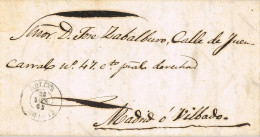 Señor D. Jose Zabalburu, Calle de Fuen
carral nº. 47. cto pral derecha
Madrid ó Bilbao.